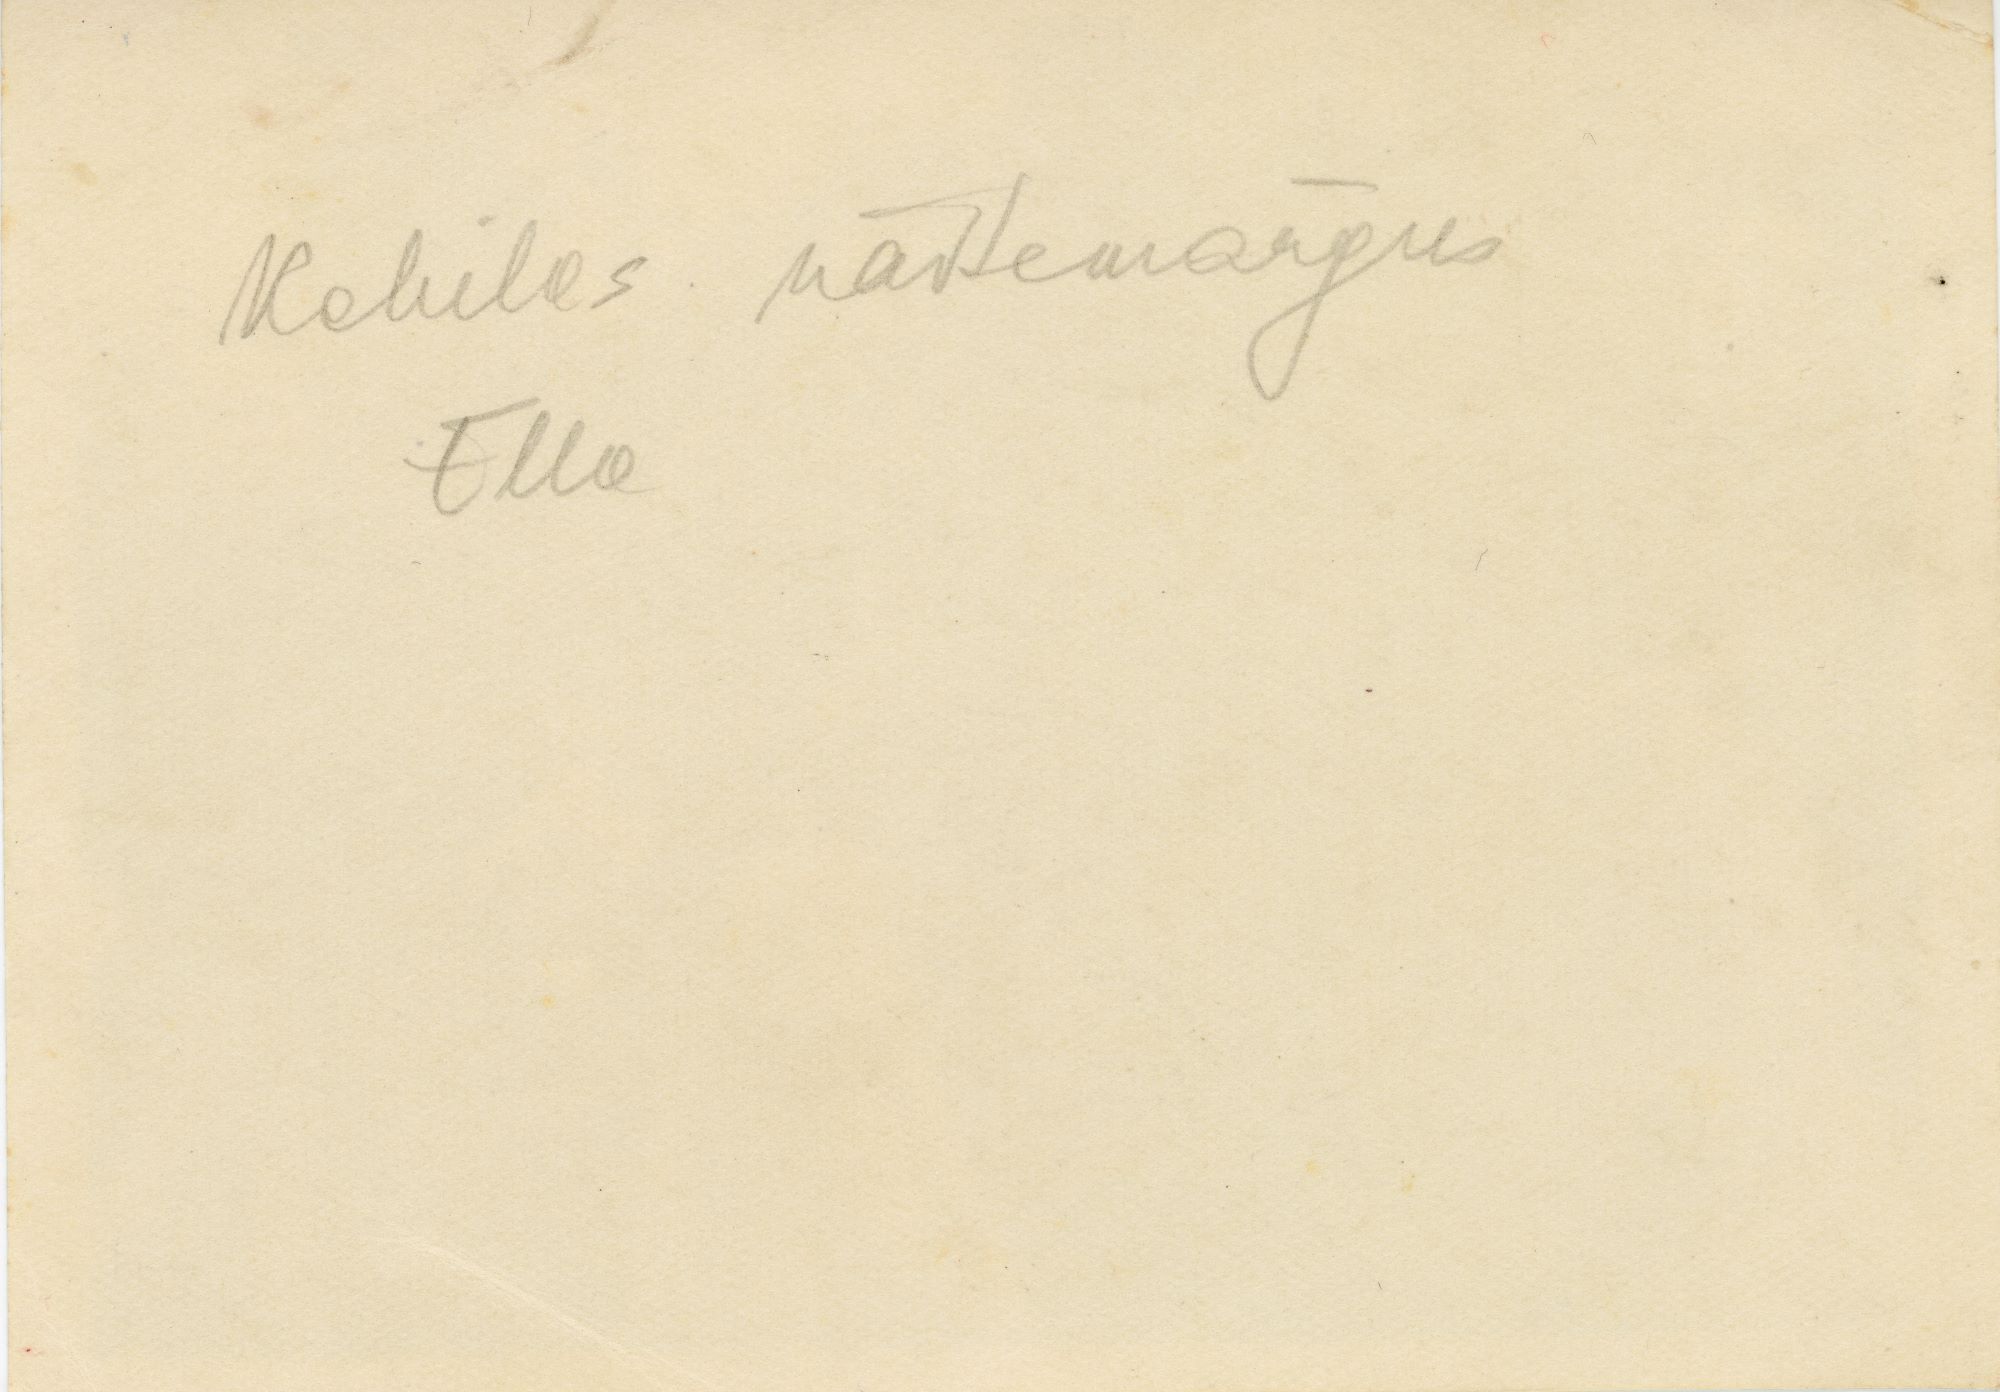 Kehilas näitemängus
Ella